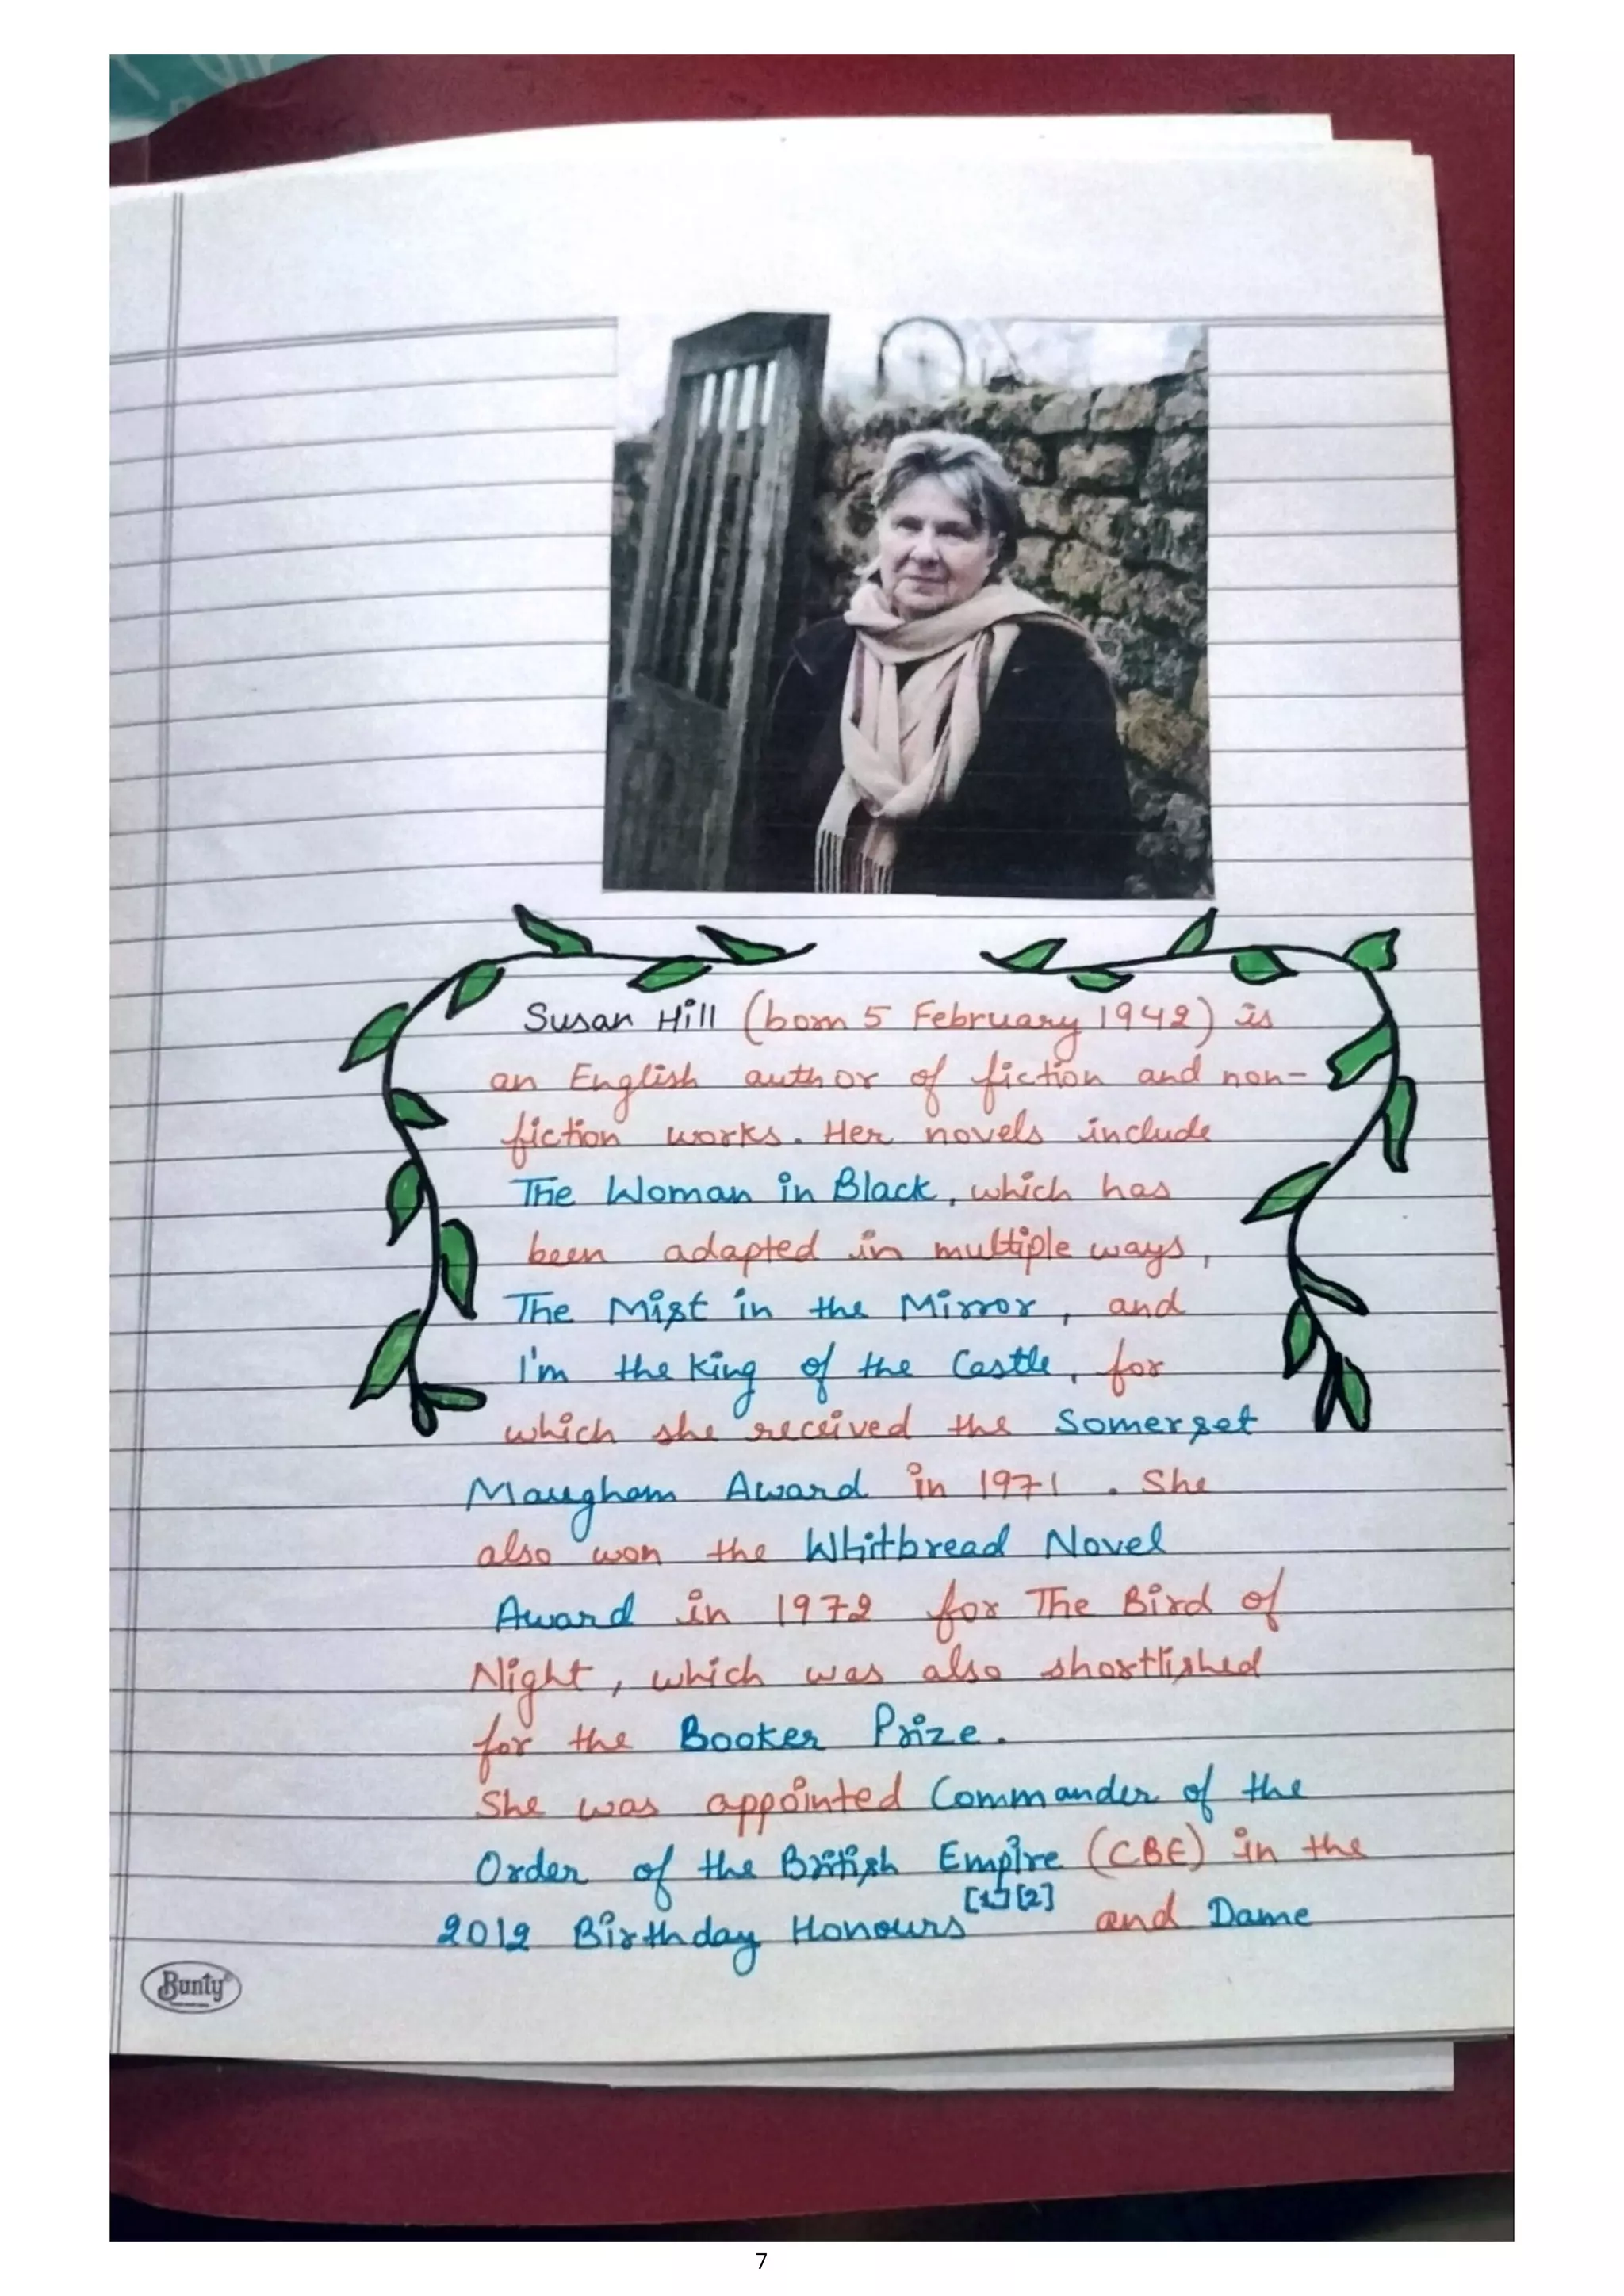 Susan Hill (born 5 February 1942) is
an English author of fiction and non-
fiction works. Her novels include
The Woman in Black, which has
been adapted in multiple ways,
The Mist in the Mirror, and
I'm the King of the Castle, for
which she received the Somerset
Maugham Award in 1971. She
also won the Whitbread Novel
Award in 1972 for The Bird of
Night, which was also shortlished
for the Booker Prize.
She was appointed Commander of the
Order of the British Empire (CBE) in the
2012 Birthday Honours[1][2] and Dame
Bunty
7